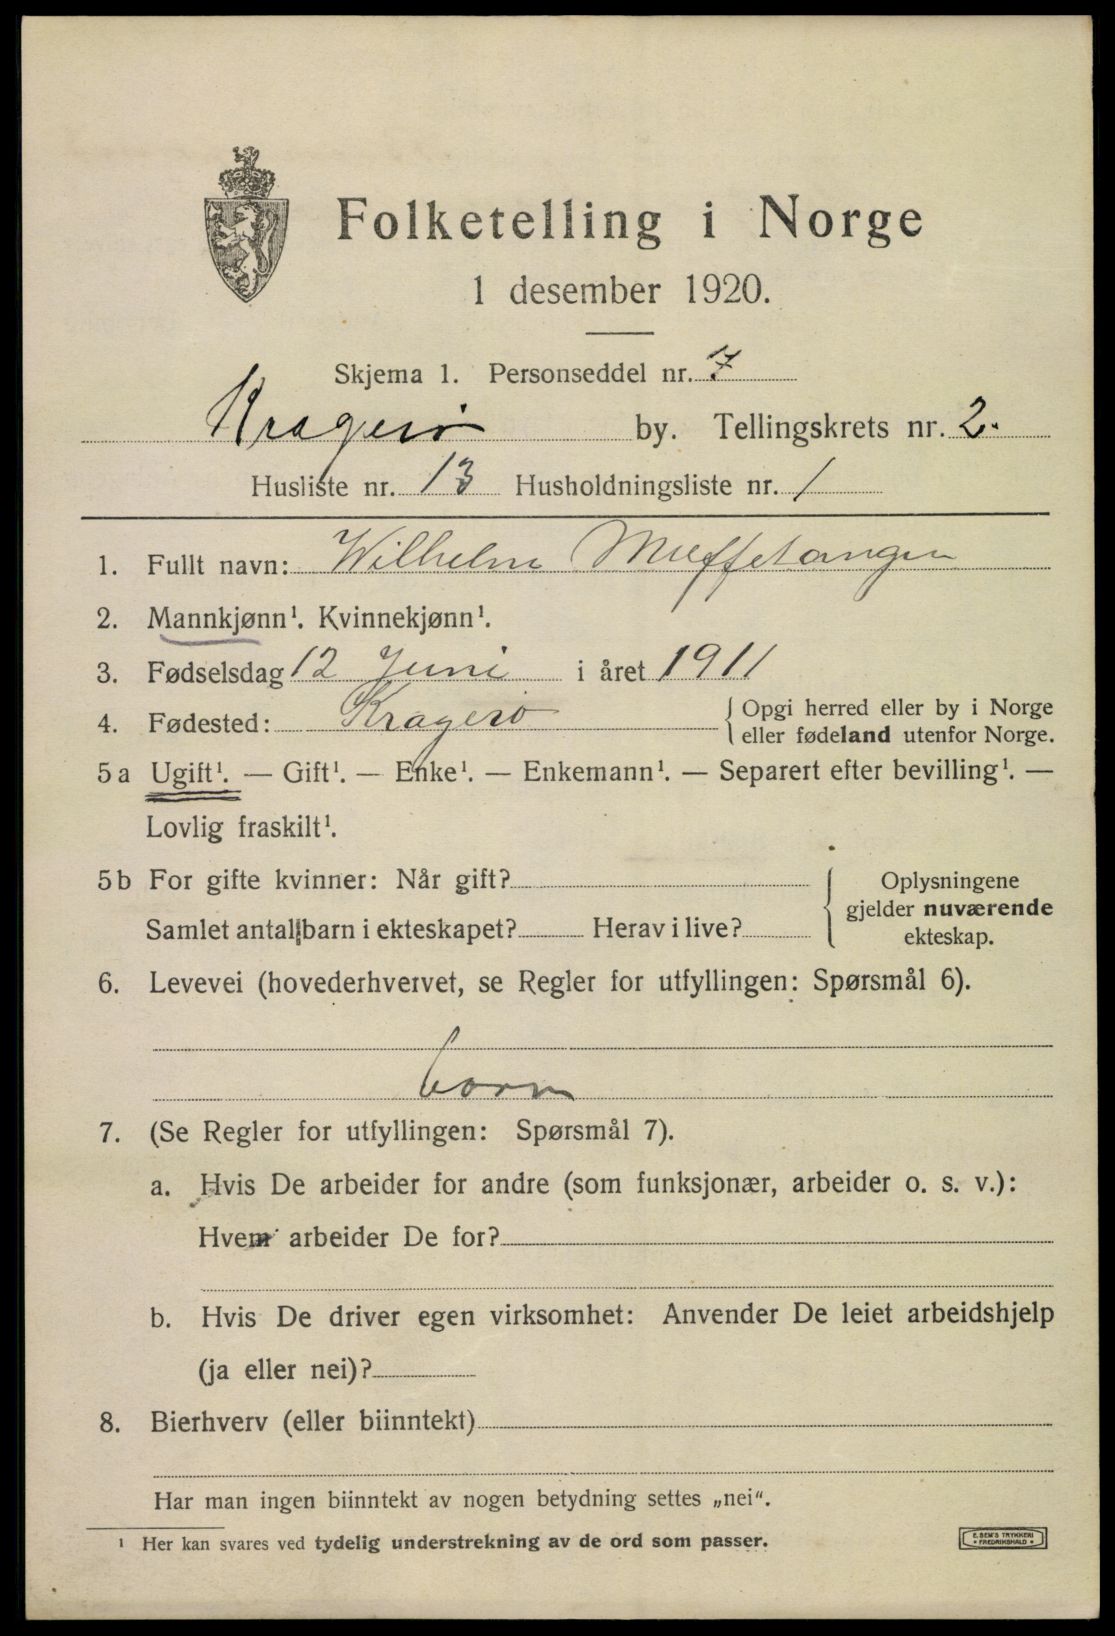 Folketelling i Norge
1 desember 1920.
Skjema 1. Personseddel nr. 7
Kragerø by. Tellingskrets nr. 2.
Husliste nr. 13 Husholdningsliste nr. 1
1. Fullt navn: Wilhelm
2. Mannkjønn¹. Kvinnekjønn¹.
3. Fødselsdag 12 Juni i året 1911
4. Fødested: Kragerø { Opgi herred eller by i Norge
eller fødeland utenfor Norge.
5 a Ugift¹. — Gift¹. — Enke¹. — Enkemann¹. — Separert efter bevilling¹. —
Lovlig fraskilt¹.
5 b For gifte kvinner: Når gift?
Samlet antal barn i ekteskapet? Herav i live?
Oplysningene
gjelder nuværende
ekteskap.
6. Levevei (hovederhvervet, se Regler for utfyllingen: Spørsmål 6).
barn
7. (Se Regler for utfyllingen: Spørsmål 7).
a. Hvis De arbeider for andre (som funksjonær, arbeider o. s. v.):
Hvem arbeider De for?
b. Hvis De driver egen virksomhet: Anvender De leiet arbeidshjelp
(ja eller nei)?
8. Bierhverv (eller biinntekt)
Har man ingen biinntekt av nogen betydning settes „nei“.
¹ Her kan svares ved tydelig understrekning av de ord som passer.
E. SEM'S TRYKKERI
• FREDRIKSHALD •